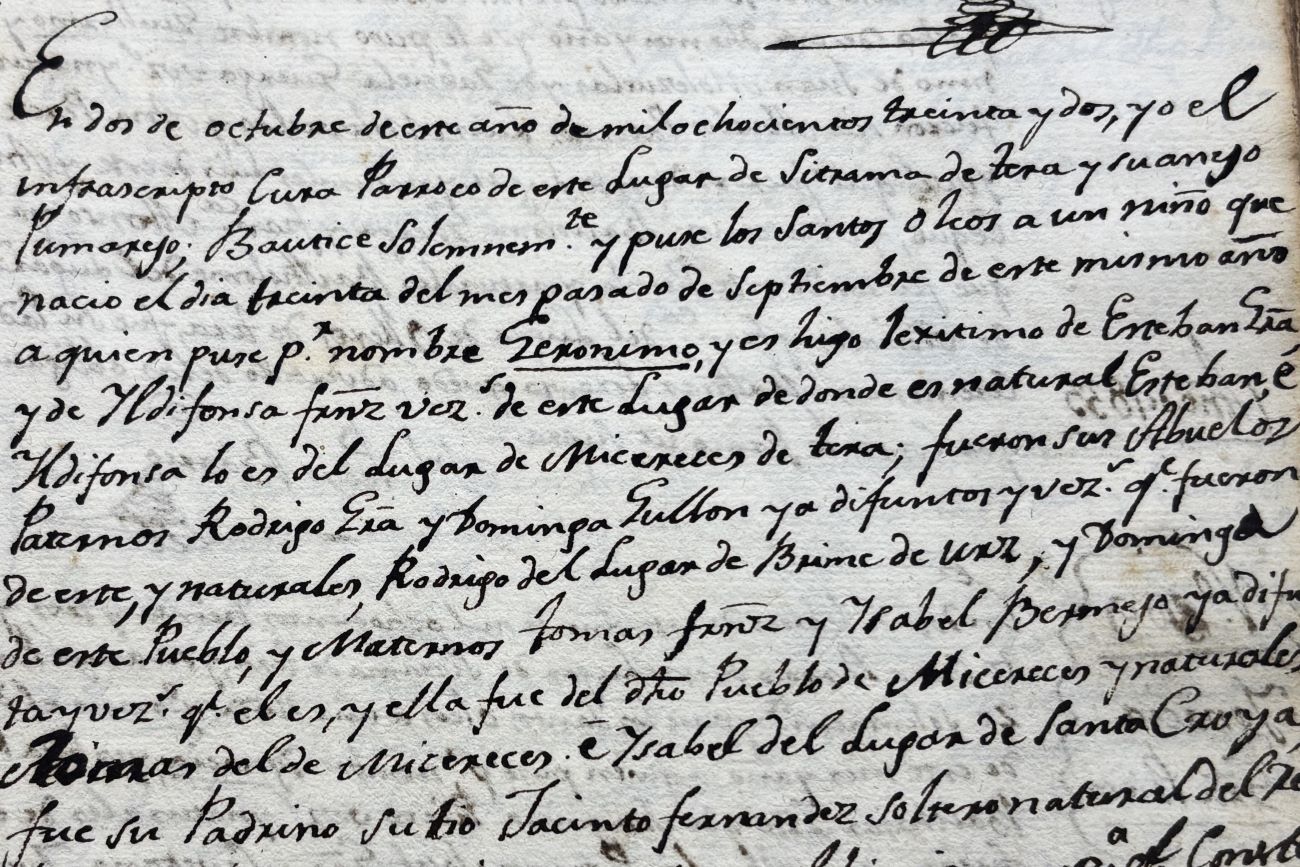 En dos de octubre de este año de mil ochocientos treinta y dos, yo el
infrascripto Cura Parroco de este Lugar de Sitrama de tera y su anejo
Pumarejo; Bautice solemnem.te y puse los Santos Oleos a un niño que
nacio el dia treinta del mes pasado de septiembre de este mismo año
a quien puse p.r nombre Geronimo, y es higo lexitimo de Esteban Grã
y de Yldifonsa frñz vez.s de este Lugar de donde es natural Esteban, é
Yldifonsa lo es del Lugar de Micereces de tera; fueron sus Abuelos
Paternos Rodrigo Grã y Dominga Gullon ya difuntos y vez.s q.e fueron
de este, y naturales, Rodrigo del Lugar de Brime de Urz, y Dominga
de este Pueblo, y Maternos tomas frñz y Ysabel Bermejo ya difu
ta y vez.s q.e el es, y ella fue del dho Pueblo de Micereces y naturales
tomas del de Micereces. é Ysabel del Lugar de Santa Croya,
fue su Padrino su tio Jacinto fernandez soltero natural del re